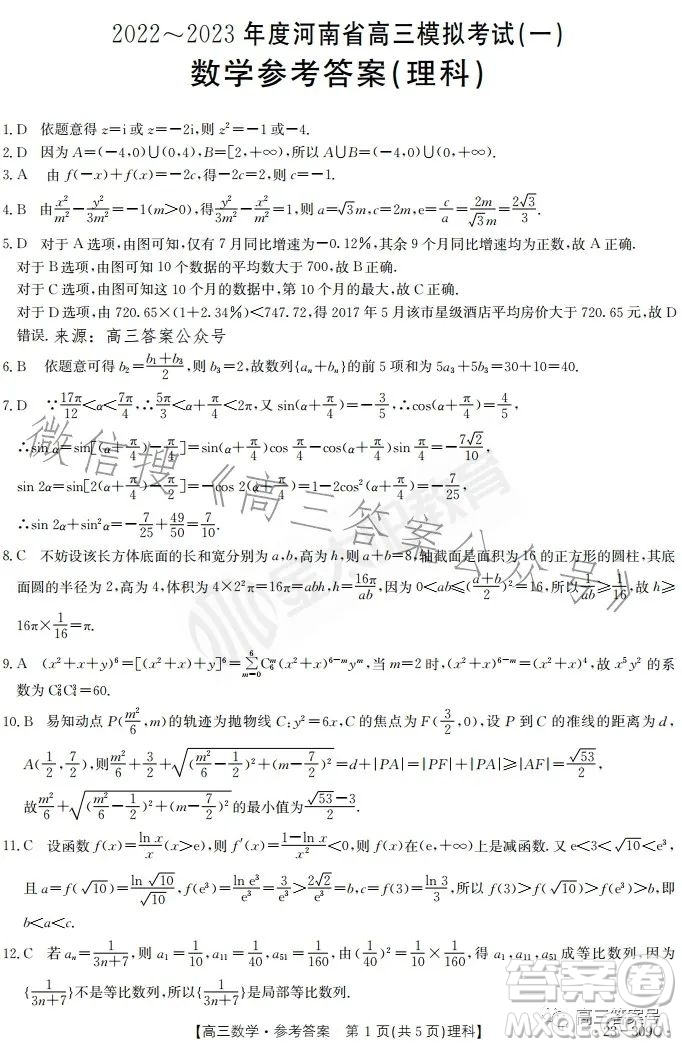 2022～2023年度河南省高三模拟考试(一)
数学参考答案(理科)
1. D 依题意得 z=i 或 z=-2i, 则 z²=-1 或-4.
2. D 因为 A=(-4,0)∪(0,4), B=[2,+∞), 所以 A∪B=(-4,0)∪(0,+∞).
3. A 由 f(-x)+f(x)=-2c, 得-2c=2, 则 c=-1.
4. B 由x²/m²-y²/3m²=-1(m>0), 得y²/3m²-x²/m²=1, 则 a=√3m, c=2m, e=c/a=2m/√3m=2√3/3.
5. D 对于 A 选项, 由图可知, 仅有 7 月同比增速为-0.12%, 其余 9 个月同比增速均为正数, 故 A 正确.
对于 B 选项, 由图可知 10 个数据的平均数大于 700, 故 B 正确.
对于 C 选项, 由图可知这 10 个月的数据中, 第 10 个月的最大, 故 C 正确.
对于 D 选项, 由 720.65×(1+2.34%)<747.72, 得 2017 年 5 月该市星级酒店平均房价大于 720.65 元, 故 D
错误. 来源: 高三答案公众号
6. B 依题意可得 b₂=(b₁+b₃)/2, 则 b₃=2, 故数列{aₙ+bₙ}的前 5 项和为 5a₃+5b₃=30+10=40.
7. D ∵17π/12<α<7π/4, ∴5π/3<α+π/4<2π, 又 sin(α+π/4)=-3/5, ∴cos(α+π/4)=4/5,
∴sin α=sin[(α+π/4)-π/4]=sin(α+π/4)cos π/4-cos(α+π/4)sin π/4=-7√2/10,
sin 2α=sin[2(α+π/4)-π/2]=-cos 2(α+π/4)=1-2cos²(α+π/4)=-7/25,
∴sin 2α+sin²α=-7/25+49/50=7/10.
8. C 不妨设该长方体底面的长和宽分别为 a,b, 高为 h, 则 a+b=8, 轴截面是面积为 16 的正方形的圆柱, 其底
面圆的半径为 2, 高为 4, 体积为 4×2²π=16π=abh, h=16π/ab, 因为 0<ab≤((a+b)/2)²=16, 所以1/ab≥1/16, 故 h≥
16π×1/16=π.
9. A (x²+x+y)⁶=[(x²+x)+y]⁶=∑(m=0→6)C₆ᵐ(x²+x)⁶⁻ᵐyᵐ, 当 m=2 时, (x²+x)⁶⁻ᵐ=(x²+x)⁴, 故 x⁵y² 的系
数为 C₆²C₄³=60.
10. B 易知动点 P(m²/6,m)的轨迹为抛物线 C:y²=6x, C 的焦点为 F(3/2,0), 设 P 到 C 的准线的距离为 d,
A(1/2,7/2), 则m²/6+3/2+√((m²/6-1/2)²+(m-7/2)²)=d+|PA|=|PF|+|PA|≥|AF|=√53/2,
故m²/6+√((m²/6-1/2)²+(m-7/2)²)的最小值为(√53-3)/2.
11. C 设函数 f(x)=ln x/x(x>e), 则 f′(x)=(1-ln x)/x²<0, 则 f(x)在(e,+∞)上是减函数. 又 e<3<√10<e³,
且 a=f(√10)=ln √10/√10, f(e³)=ln e³/e³=3/e³>2√2/e³=b, c=f(3)=ln 3/3, 所以 b<f(e³)<f(√10)<f(3), 即
b<a<c.
12. C 若 aₙ=1/(3n+7), 则 a₁=1/10, a₁₁=1/40, a₅₁=1/160, 由(1/40)²=1/10×1/160, 得 a₁,a₁₁,a₅₁成等比数列, 因为
{1/(3n+7)}不是等比数列, 所以{1/(3n+7)}是局部等比数列.
【高三数学·参考答案 第 1 页(共 5 页)理科】
23-309C
微信搜《高三答案公众号》
高三答案号
答案圈
MXQE.COM